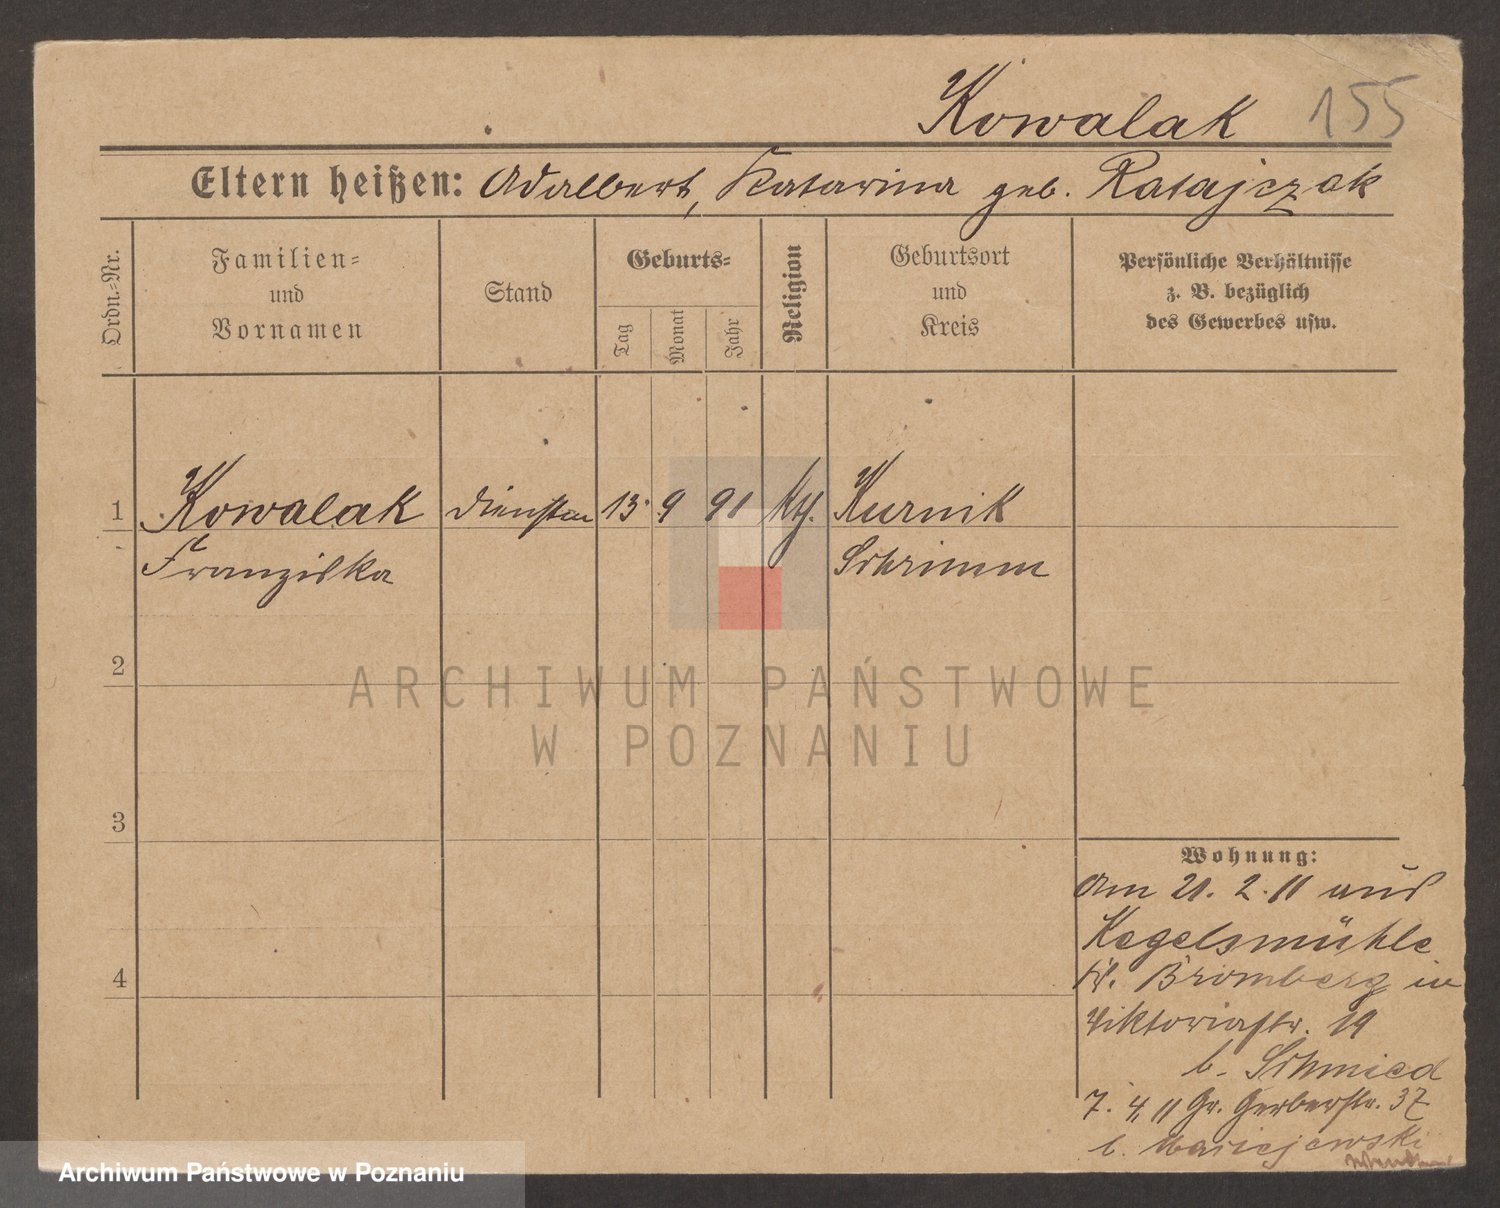 Kowalak 155
Eltern heißen: Adalbert, Katarina geb. Ratajczak
Ordn.-Nr.
Familien-
und
Vornamen
Stand
Geburts-
Tag
Monat
Jahr
Religion
Geburtsort
und
Kreis
Persönliche Verhältnisse
z. B. bezüglich
des Gewerbes usw.
1 Kowalak 13 9 91 kth. Kurnik
Franziska Schrimm
2
3
4
Wohnung:
Am 21. 2. 11 aus
Kegelsmühle
Kr. Bromberg in
Viktoriastr. 19
b. Schmied
7. 4. 11 Gr. Gerberstr. 37
b. Maciejewski
ARCHIWUM PAŃSTWOWE
W POZNANIU
Archiwum Państwowe w Poznaniu